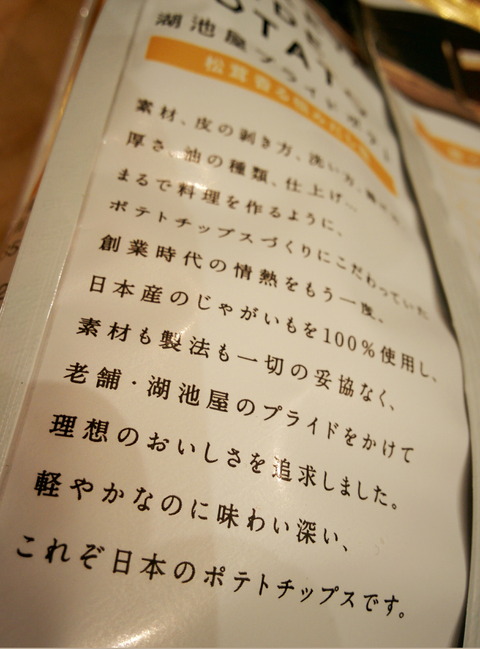 POTATO
湖池屋プライドポテト
松茸香る
素材、皮の剥き方、洗い方、
厚さ、油の種類、仕上げ…
まるで料理を作るように、
ポテトチップスづくりにこだわっていた
創業時代の情熱をもう一度。
日本産のじゃがいもを100%使用し、
素材も製法も一切の妥協なく、
老舗・湖池屋のプライドをかけて
理想のおいしさを追求しました。
軽やかなのに味わい深い、
これぞ日本のポテトチップスです。